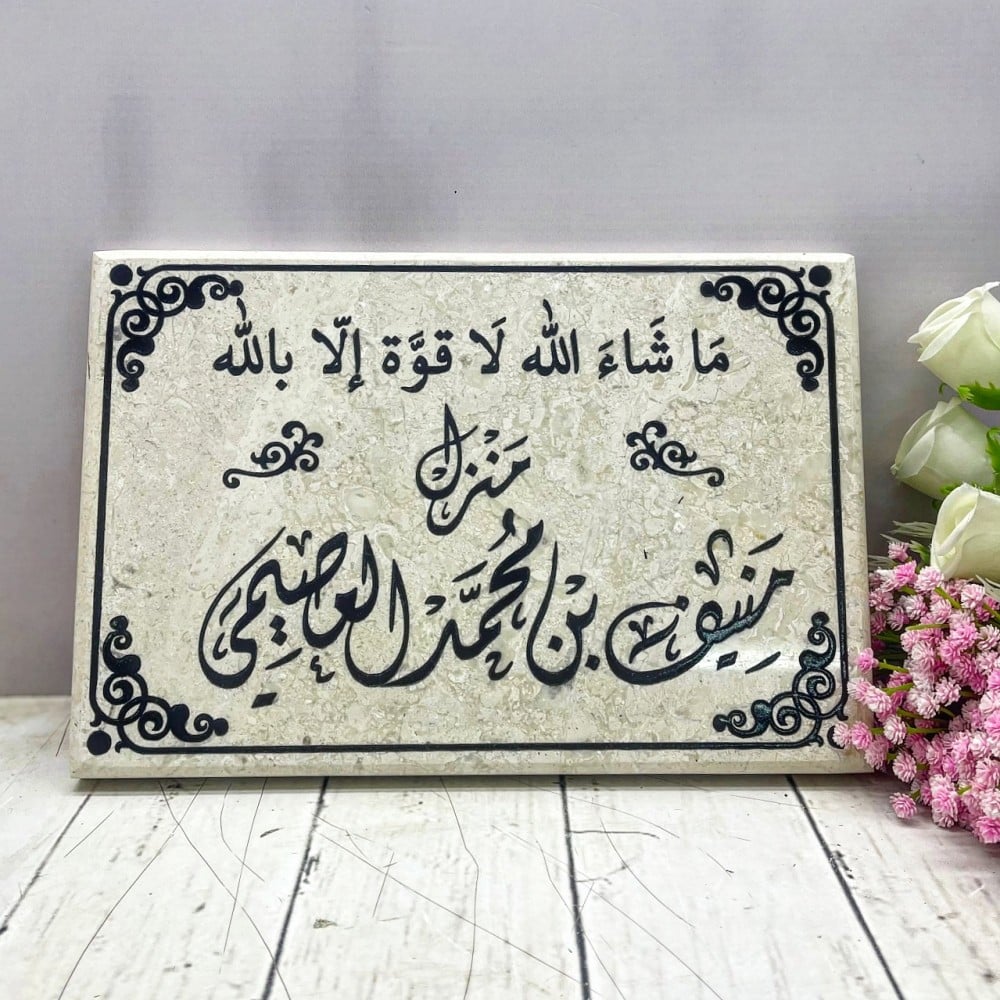 مَا شَاءَ الله لَا قوَّة إلّا بالله
مَنْزل
مَنيف بْن مُحمَّد العصيمي